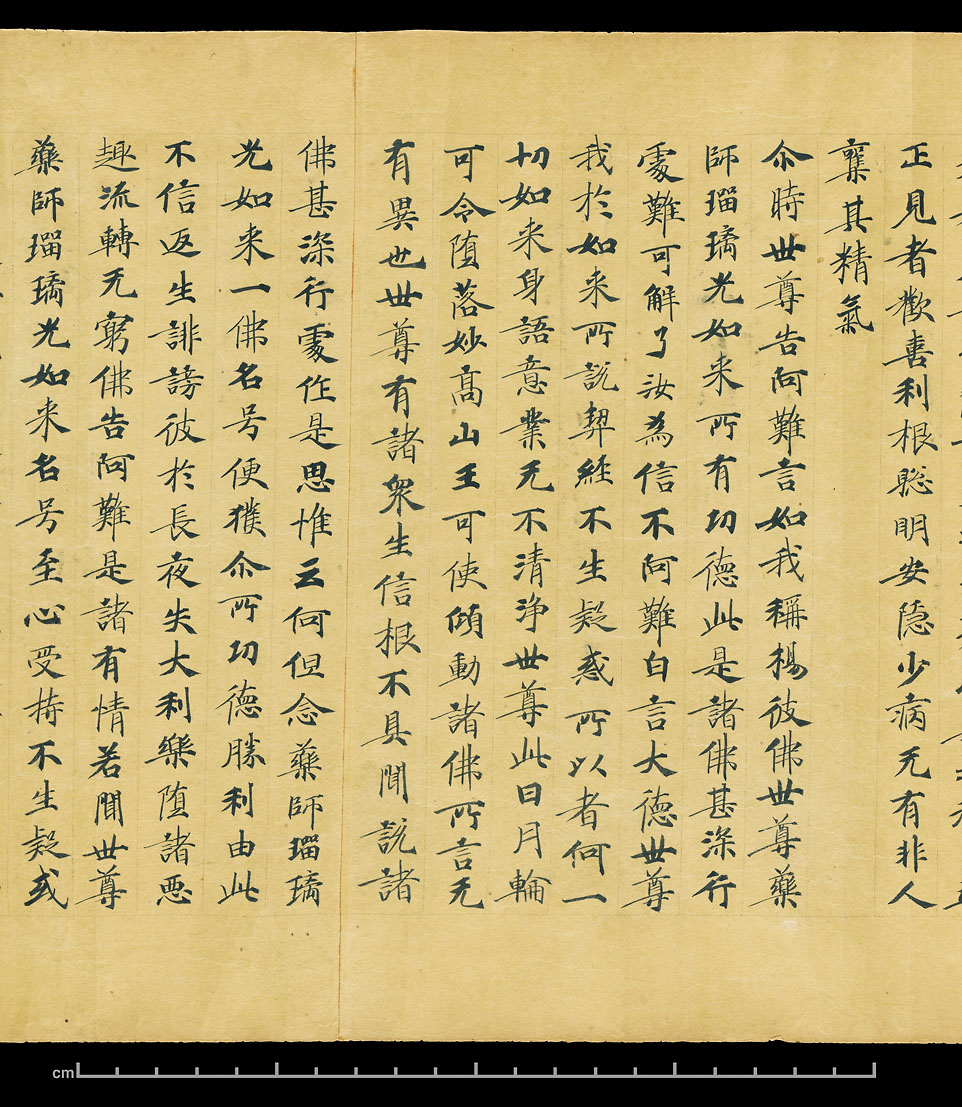 正見者歡喜利根聡明安隱少病无有非人
奪其精氣
尒時世尊告阿難言如我稱楊彼佛世尊藥
師瑠璃光如来所有功德此是諸佛甚深行
處難可解了汝為信不阿難白言大德世尊
我於如来所說契經不生疑惑所以者何一
切如来身語意業无不清淨世尊此日月輪
可令墮落妙高山王可使傾動諸佛所言无
有異也世尊有諸衆生信根不具聞說諸
佛甚深行處作是思惟云何但念藥師瑠璃
光如来一佛名号便獲尒所功德勝利由此
不信返生誹謗彼於長夜失大利樂墮諸惡
趣流轉无窮佛告阿難是諸有情若聞世尊
藥師瑠璃光如来名号至心受持不生疑或